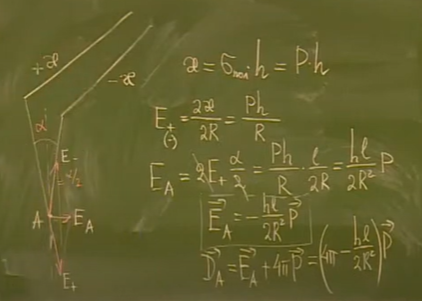 +æ
-æ
α
E-
α/2
A
E_A
E+
æ = σ_пол h = P·h
E_+(-) = 2æ/2R = Ph/R
E_A = 2E_+ α/2 = Ph/R · l/2R = hl/2R² P
E⃗_A = - hl/2R² P⃗
D⃗_A = E⃗_A + 4πP⃗ = (4π - hl/2R²) P⃗